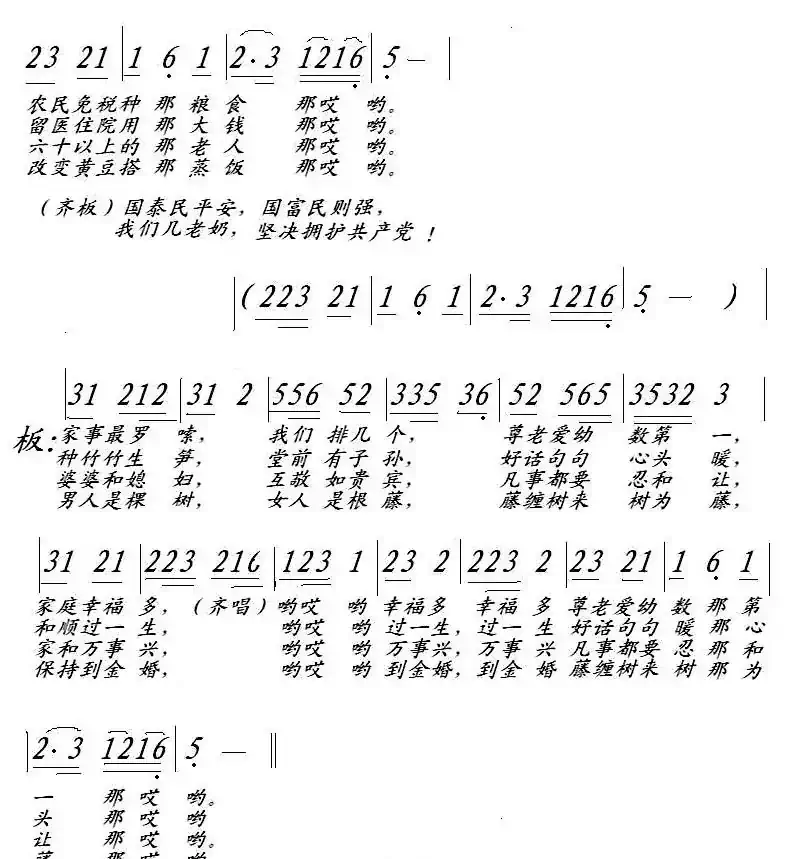 23 21 | 1 6 1 | 2·3 1216 | 5 — |
农民免税种 那 粮 食 那哎 哟。
留医住院用 那 大 钱 那哎 哟。
六十以上的 那 老 人 那哎 哟。
改变黄豆搭 那 蒸 饭 那哎 哟。
(齐板)国泰民平安，国富民则强，
我们几老奶，坚决拥护共产党！
| (223 21 | 1 6 1 | 2·3 1216 | 5 — ) |
| 31 212 | 31 2 | 556 52 | 335 36 | 52 565 | 3532 3 |
板：家事最罗 嗦， 我们 排几 个， 尊老爱幼 数第 一，
种竹竹生 笋， 堂前 有子 孙， 好话句句 心头 暖，
婆婆和媳 妇， 互敬 如贵 宾， 凡事都要 忍和 让，
男人是棵 树， 女人 是根 藤， 藤缠树来 树为 藤，
| 31 21 | 223 216 | 123 1 | 23 2 | 223 2 | 23 21 | 1 6 1 |
家庭幸福 多，(齐唱)哟哎 哟 幸福多 幸福 多 尊老爱幼 数 那 第
和顺过一 生， 哟哎 哟 过一生，过一 生 好话句句 暖 那 心
家和万事 兴， 哟哎 哟 万事兴，万事 兴 凡事都要 忍 那 和
保持到金 婚， 哟哎 哟 到金婚，到金 婚 藤缠树来 树 那 为
| 2·3 1216 | 5 — ‖
一 那哎 哟。
头 那哎 哟
让 那哎 哟。
藤 那哎 哟